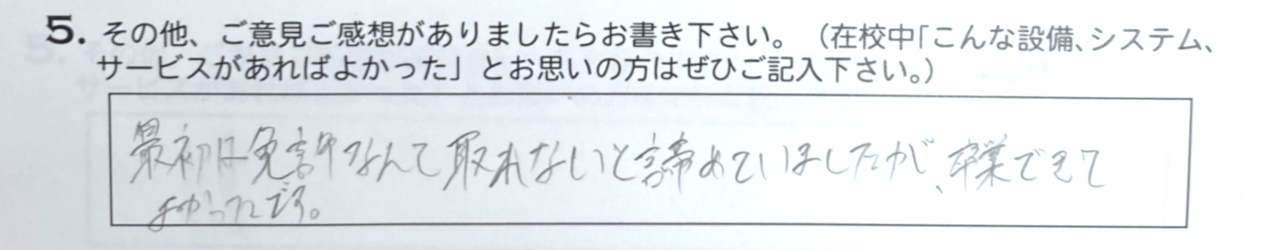 5. その他、ご意見ご感想がありましたらお書き下さい。（在校中「こんな設備、システム、
サービスがあればよかった」とお思いの方はぜひご記入下さい。）
最初は免許なんて取れないと諦めていましたが、卒業できて
よかったです。